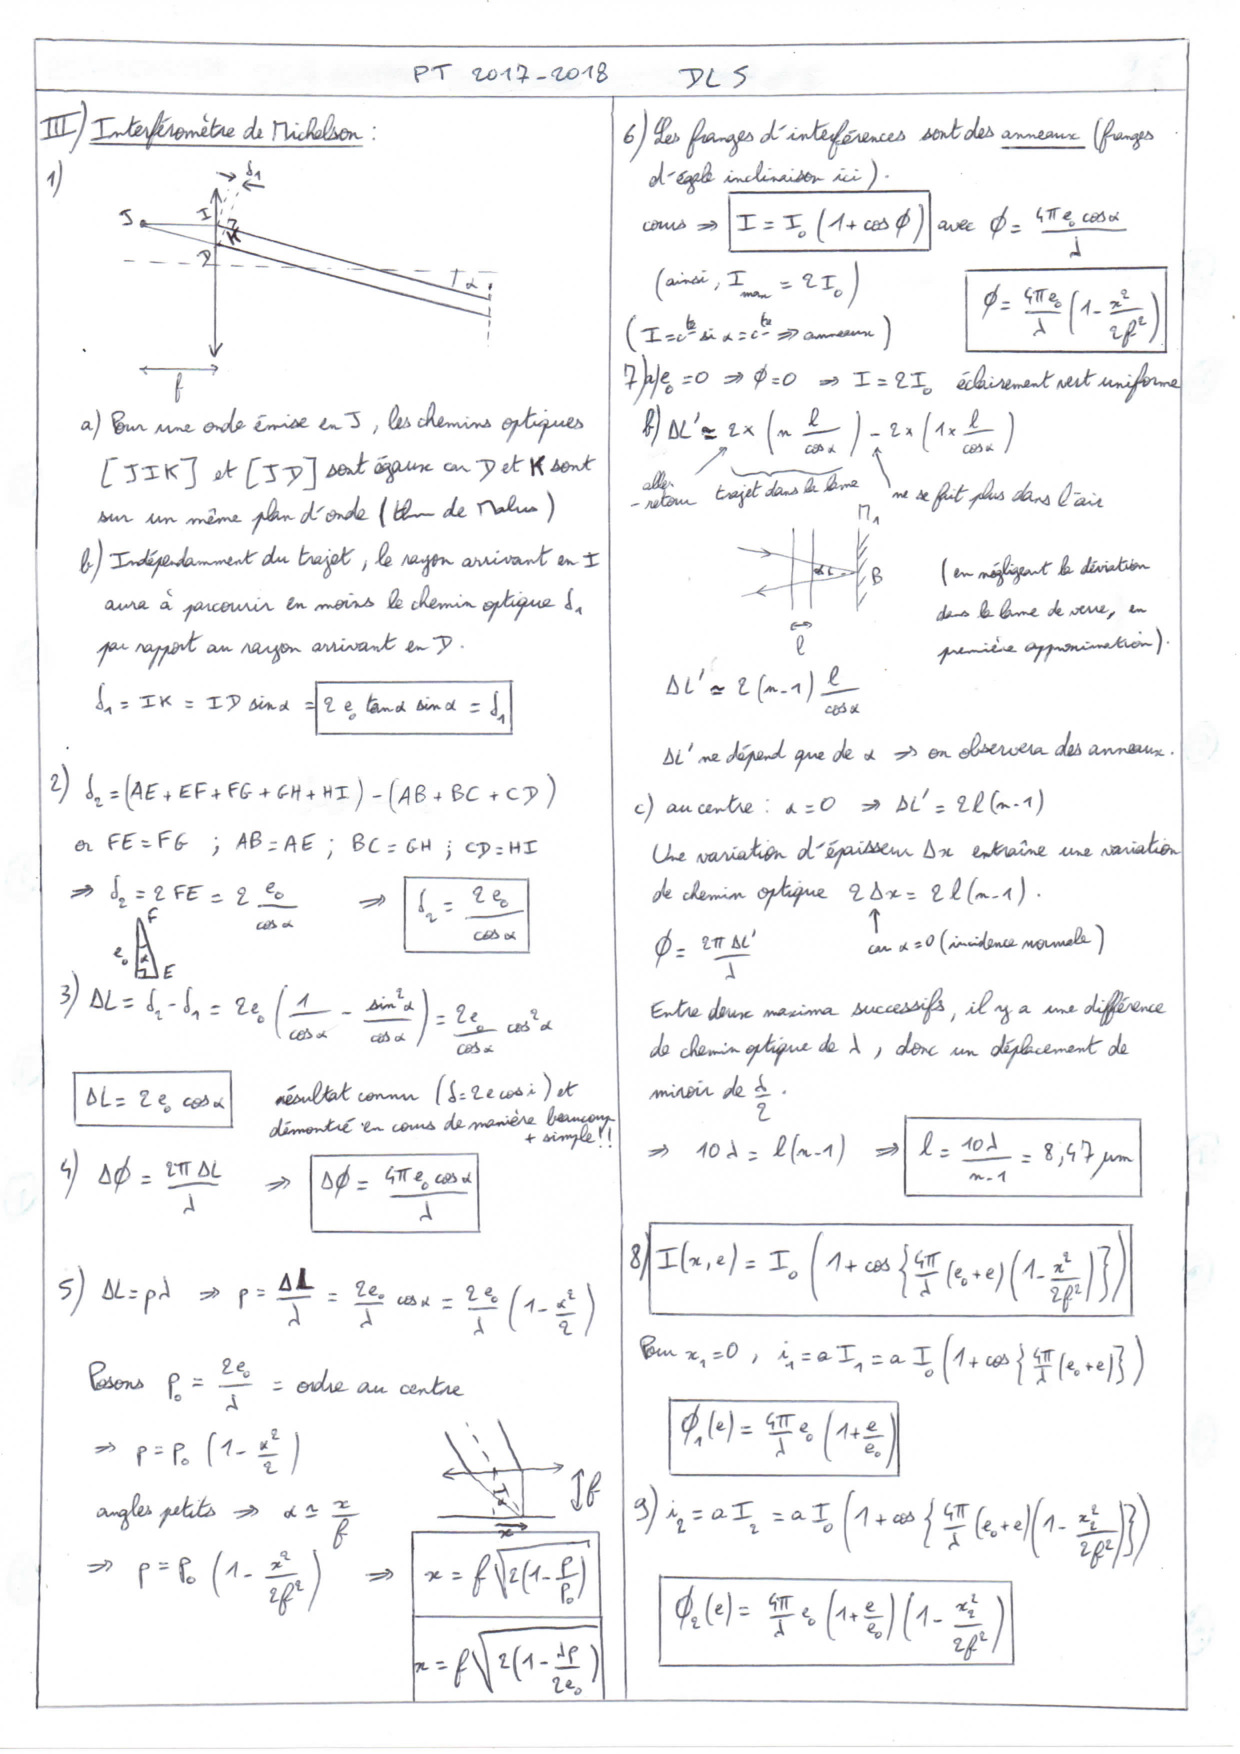 PT 2017-2018 DL 5
III) Interféromètre de Michelson :
1)
δ₁
J
I
K
D
α
f
a) Pour une onde émise en J, les chemins optiques
[JIK] et [JD] sont égaux car D et K sont
sur un même plan d'onde (thm de Malus)
b) Indépendamment du trajet, le rayon arrivant en I
aura à parcourir en moins le chemin optique δ₁
par rapport au rayon arrivant en D.
δ₁ = IK = ID sin α = 2 e₀ tan α sin α = δ₁
2) δ₂ = (AE + EF + FG + GH + HI) - (AB + BC + CD)
or FE = FG ; AB = AE ; BC = GH ; CD = HI
⇒ δ₂ = 2 FE = 2 e₀/cos α ⇒ δ₂ = 2e₀/cos α
F
e₀ α
E
3) ΔL = δ₂ - δ₁ = 2e₀ (1/cos α - sin²α/cos α) = 2e₀/cos α cos²α
ΔL = 2 e₀ cos α résultat connu (δ = 2 e cos i) et
démontré en cours de manière beaucoup
+ simple !!
4) Δφ = 2π ΔL/λ ⇒ Δφ = 4π e₀ cos α/λ
5) ΔL = pλ ⇒ p = ΔL/λ = 2e₀/λ cos α = 2e₀/λ (1 - α²/2)
Posons p₀ = 2e₀/λ = ordre au centre
⇒ p = p₀ (1 - α²/2)
angles petits ⇒ α ≃ x/f
α
f
x
⇒ p = p₀ (1 - x²/2f²) ⇒ x = f √(2(1 - p/p₀))
x = f √(2(1 - λp/2e₀))
6) Les franges d'interférences sont des anneaux (franges
d'égale inclinaison ici).
cours ⇒ I = I₀ (1 + cos φ) avec φ = 4π e₀ cos α/λ
(ainsi, I max = 2 I₀) φ = 4π e₀/λ (1 - x²/2f²)
(I = cte si α = cte ⇒ anneaux)
7) a) e₀ = 0 ⇒ φ = 0 ⇒ I = 2 I₀ éclairement vert uniforme
b) ΔL' ≃ 2 × (n l/cos α) - 2 × (1 × l/cos α)
aller
- retour trajet dans la lame ne se fait plus dans l'air
M₁
α
B
l
(en négligeant la déviation
dans la lame de verre, en
première approximation).
ΔL' ≃ 2 (n - 1) l/cos α
ΔL' ne dépend que de α ⇒ on observera des anneaux.
c) au centre : α = 0 ⇒ ΔL' = 2l (n - 1)
Une variation d'épaisseur Δx entraîne une variation
de chemin optique 2 Δx = 2 l (n - 1).
φ = 2π ΔL'/λ car α = 0 (incidence normale)
Entre deux maxima successifs, il y a une différence
de chemin optique de λ, donc un déplacement de
miroir de λ/2.
⇒ 10 λ = l (n - 1) ⇒ l = 10 λ/n - 1 = 8,47 μm
8) I(x, e) = I₀ (1 + cos {4π/λ (e₀ + e) (1 - x²/2f²)})
Pour x₁ = 0, i₁ = a I₁ = a I₀ (1 + cos {4π/λ (e₀ + e)})
φ₁(e) = 4π/λ e₀ (1 + e/e₀)
9) i₂ = a I₂ = a I₀ (1 + cos {4π/λ (e₀ + e) (1 - x₂²/2f²)})
φ₂(e) = 4π/λ e₀ (1 + e/e₀) (1 - x₂²/2f²)